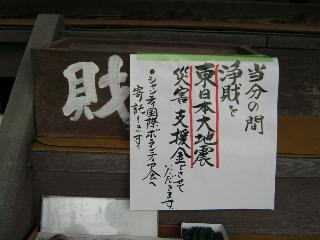 当分の間
浄財を
東日本大地震
災害支援金とさせて
いただきます。
・シャンティ国際ボランティア会へ
寄託します。
財